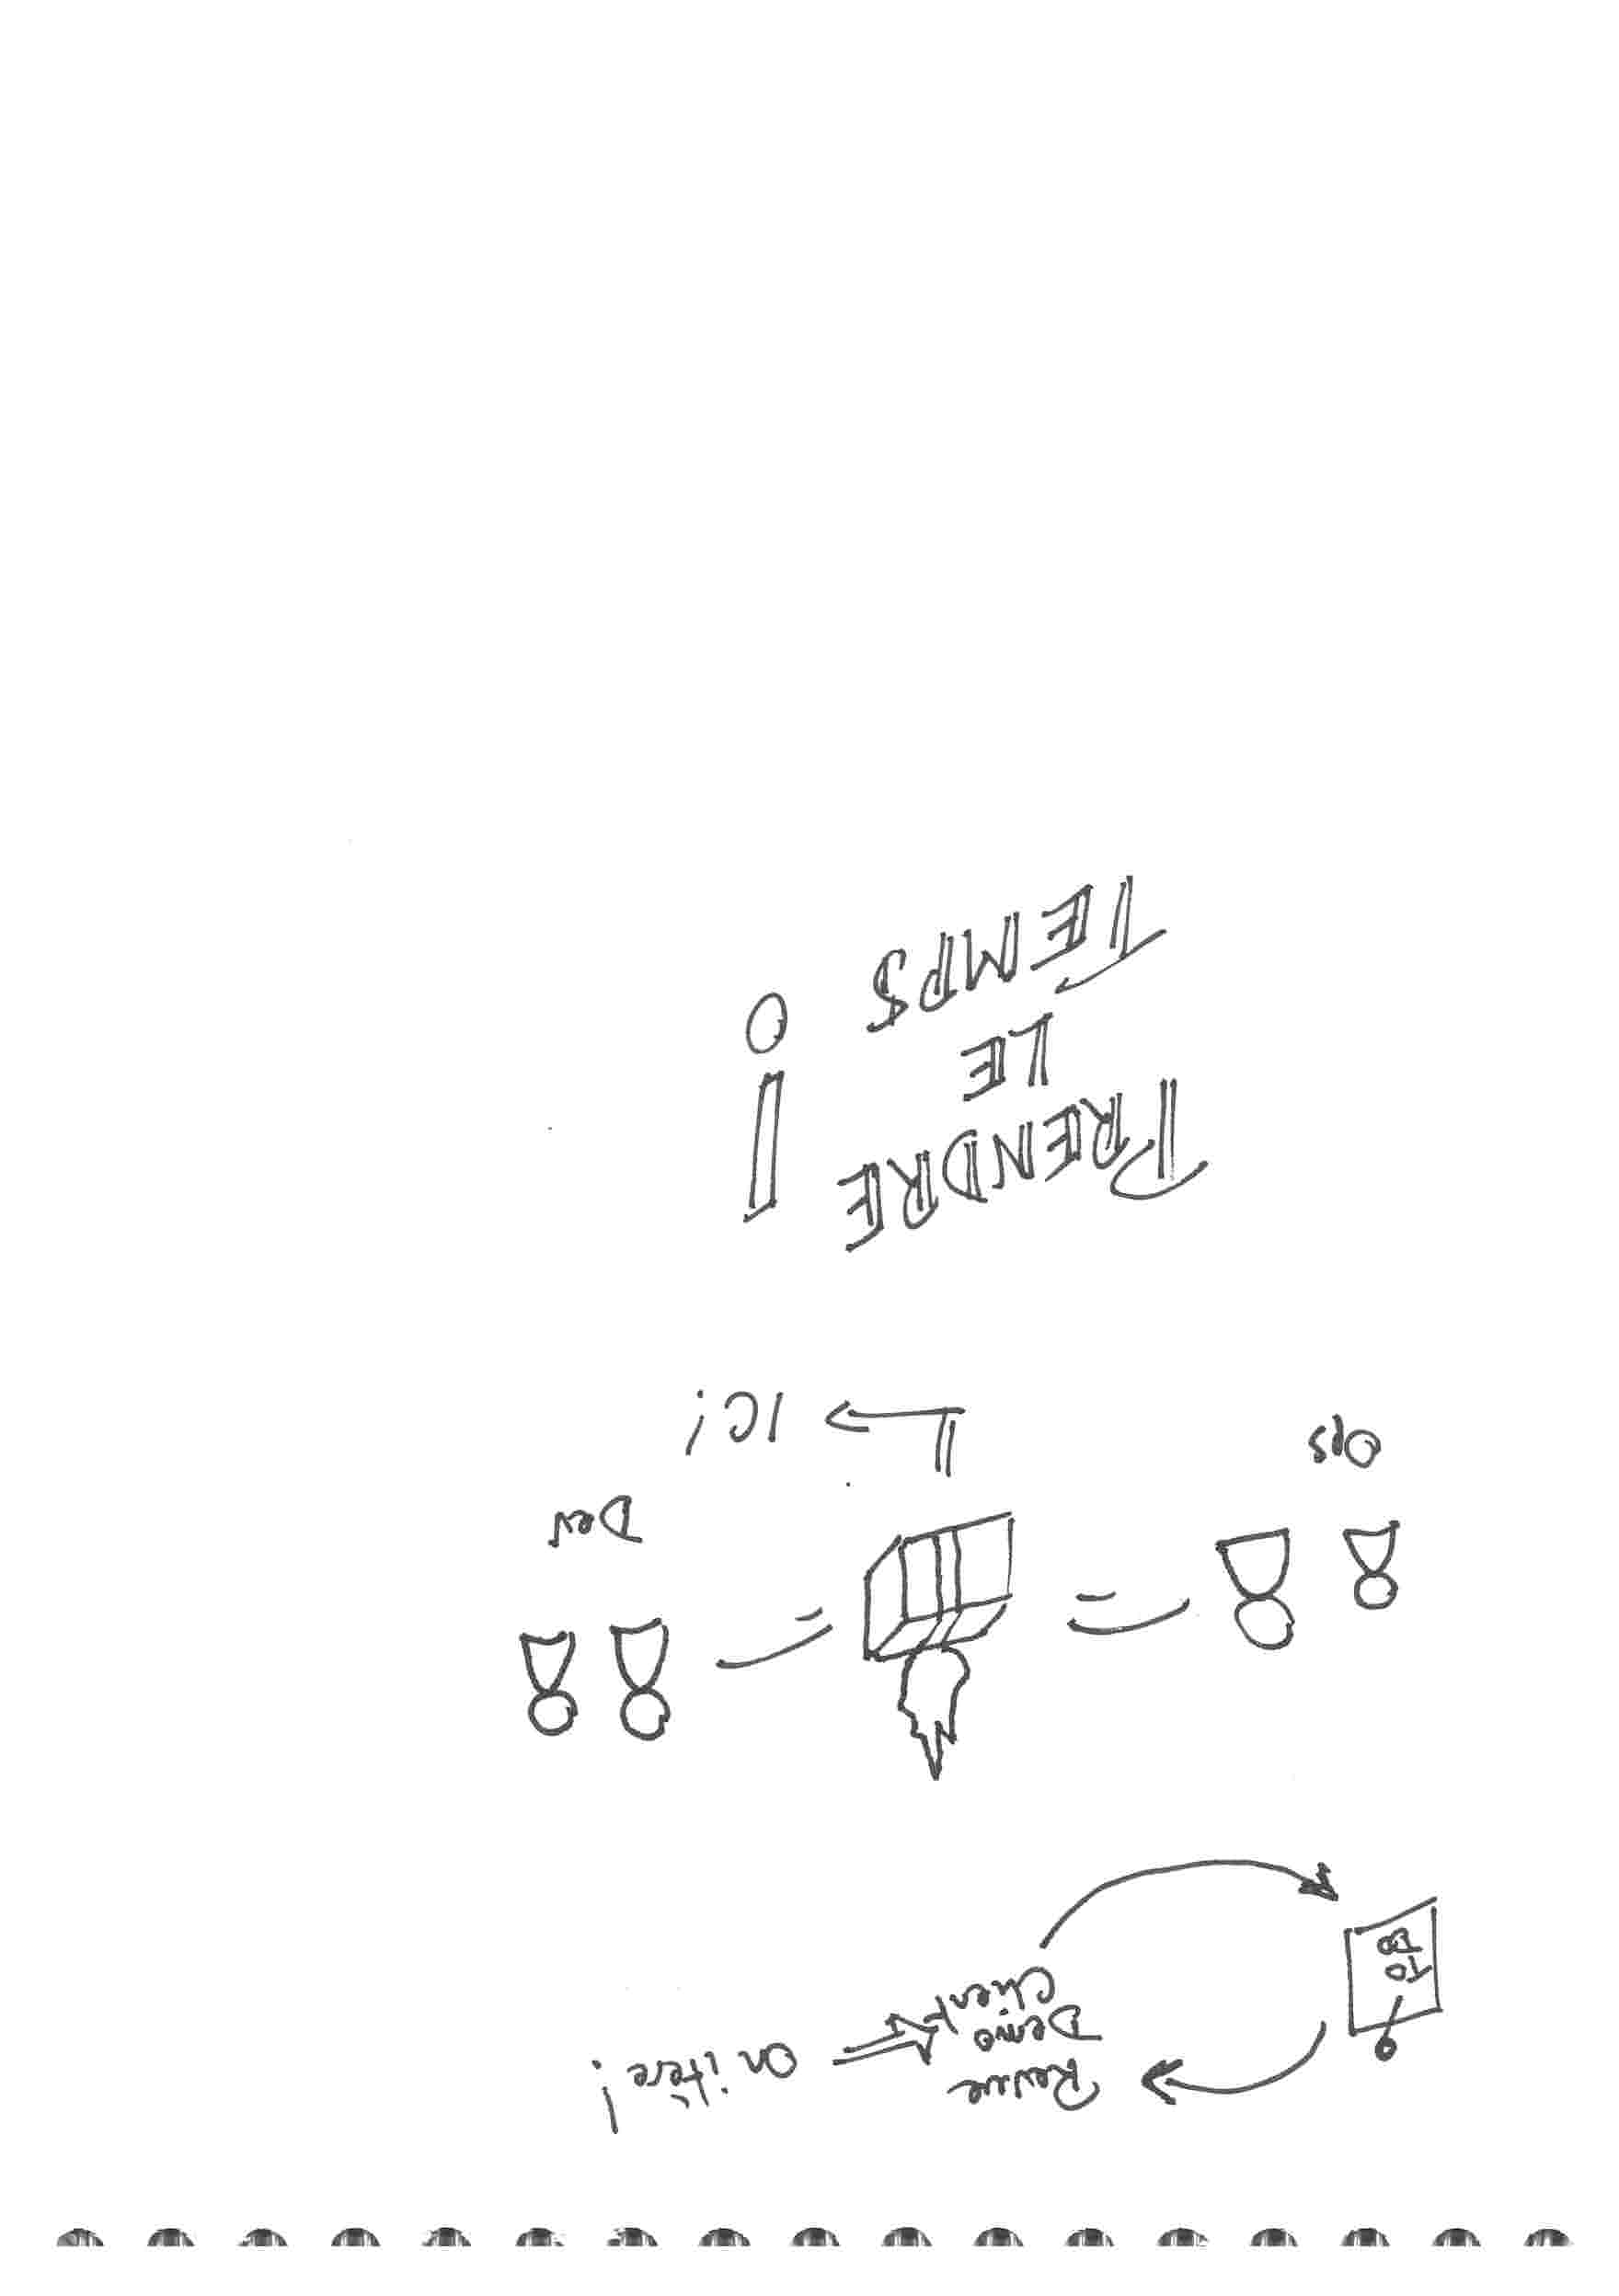 Revue
Demo
Client
On itère !
TO
DO
Ops
Dev
IC !
PRENDRE
LE
TEMPS !